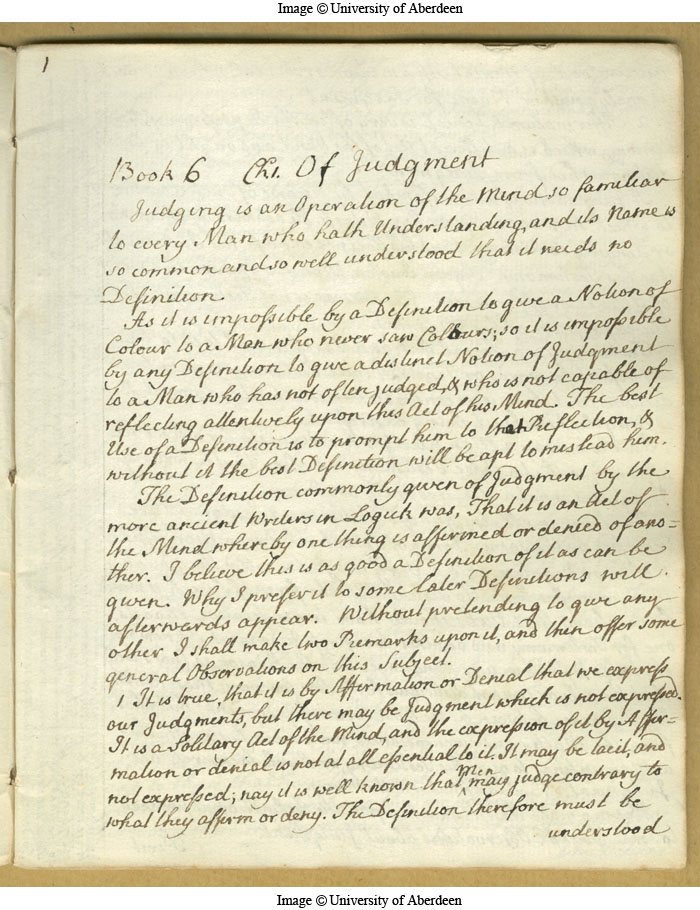 Image © University of Aberdeen
1
Book 6 Ch1. Of Judgment
Judging is an Operation of the Mind so familiar
to every Man who hath Understanding, and its Name is
so common and so well understood that it needs no
Definition.
As it is impossible by a Definition to give a Notion of
Colour to a Man who never saw Colours; so it is impossible
by any Definition to give a distinct Notion of Judgment
to a Man who has not often judged, & who is not capable of
reflecting attentively upon this Act of his Mind. The best
Use of a Definition is to prompt him to that Reflection, &
without it the best Definition will be apt to mislead him.
The Definition commonly given of Judgment by the
more ancient Writers in Logick was, That it is an Act of
the Mind whereby one thing is affirmed or denied of ano=
ther. I believe this is as good a Definition of it as can be
given. Why I prefer it to some later Definitions will
afterwards appear. Without pretending to give any
other I shall make two Remarks upon it, and then offer some
general Observations on this Subject.
1 It is true, that it is by Affirmation or Denial that we express
our Judgments, but there may be Judgment which is not expressed.
It is a Solitary Act of the Mind, and the expression of it by Affir=
mation or denial is not at all essential to it. It may be tacit, and
not expressed; nay it is well known that Men may judge contrary to
what they affirm or deny. The Definition therefore must be
understood
Image © University of Aberdeen